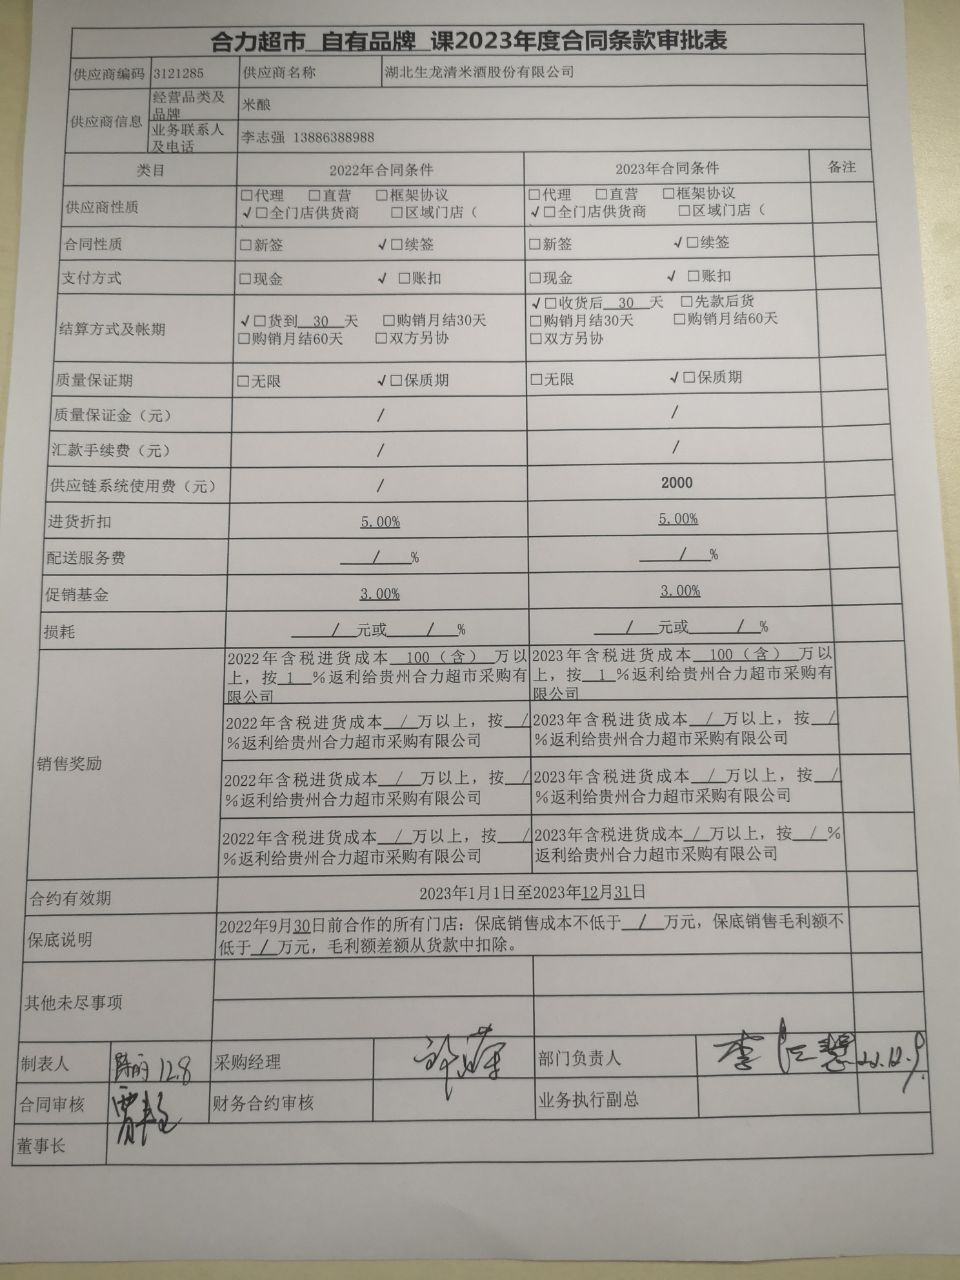 合力超市 自有品牌 课2023年度合同条款审批表
供应商编码 3121285 供应商名称 湖北生龙清米酒股份有限公司
供应商信息 经营品类及品牌 米酿
业务联系人及电话 李志强 13886388988
类目 2022年合同条件 2023年合同条件 备注
供应商性质 □代理 □直营 □框架协议 □代理 □直营 □框架协议
√□全门店供货商 □区域门店（ √□全门店供货商 □区域门店（
合同性质 □新签 √□续签 □新签 √□续签
支付方式 □现金 √ □账扣 □现金 √ □账扣
结算方式及帐期 √□货到 30 天 □购销月结30天 √□收货后 30 天 □先款后货
□购销月结60天 □双方另协 □购销月结30天 □购销月结60天
□双方另协
质量保证期 □无限 √□保质期 □无限 √□保质期
质量保证金（元） / /
汇款手续费（元） / /
供应链系统使用费（元） / 2000
进货折扣 5.00% 5.00%
配送服务费 / % / %
促销基金 3.00% 3.00%
损耗 / 元或 / % / 元或 / %
销售奖励
2022年含税进货成本 100（含） 万以上，按 1 %返利给贵州合力超市采购有限公司 2023年含税进货成本 100（含） 万以上，按 1 %返利给贵州合力超市采购有限公司
2022年含税进货成本 / 万以上，按 / %返利给贵州合力超市采购有限公司 2023年含税进货成本 / 万以上，按 / %返利给贵州合力超市采购有限公司
2022年含税进货成本 / 万以上，按 / %返利给贵州合力超市采购有限公司 2023年含税进货成本 / 万以上，按 / %返利给贵州合力超市采购有限公司
2022年含税进货成本 / 万以上，按 / %返利给贵州合力超市采购有限公司 2023年含税进货成本 / 万以上，按 / %返利给贵州合力超市采购有限公司
合约有效期 2023年1月1日至2023年12月31日
保底说明 2022年9月30日前合作的所有门店：保底销售成本不低于 / 万元，保底销售毛利额不
低于 / 万元，毛利额差额从货款中扣除。
其他未尽事项
制表人 12.8 采购经理 部门负责人 李 22.12.9.
合同审核 财务合约审核 业务执行副总
董事长